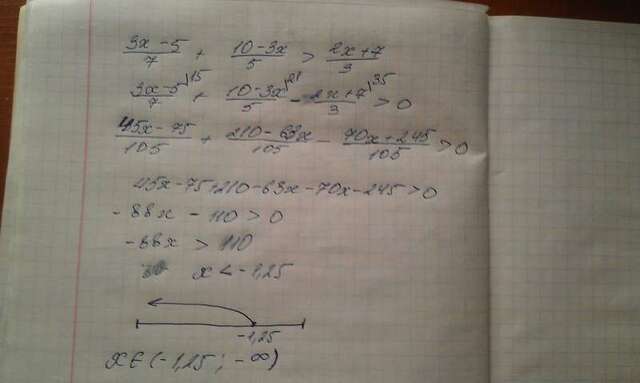 (3x-5)/7 + (10-3x)/5 > (2x+7)/3
(3x-5)/7 ^15 + (10-3x)/5 ^21 - (2x+7)/3 ^35 > 0
(45x-75)/105 + (210-63x)/105 - (70x+245)/105 > 0
45x-75+210-63x-70x-245>0
-88x -110 > 0
-88x > 110
x < -1,25
-1,25
x ∈ (-1,25 ; -∞)